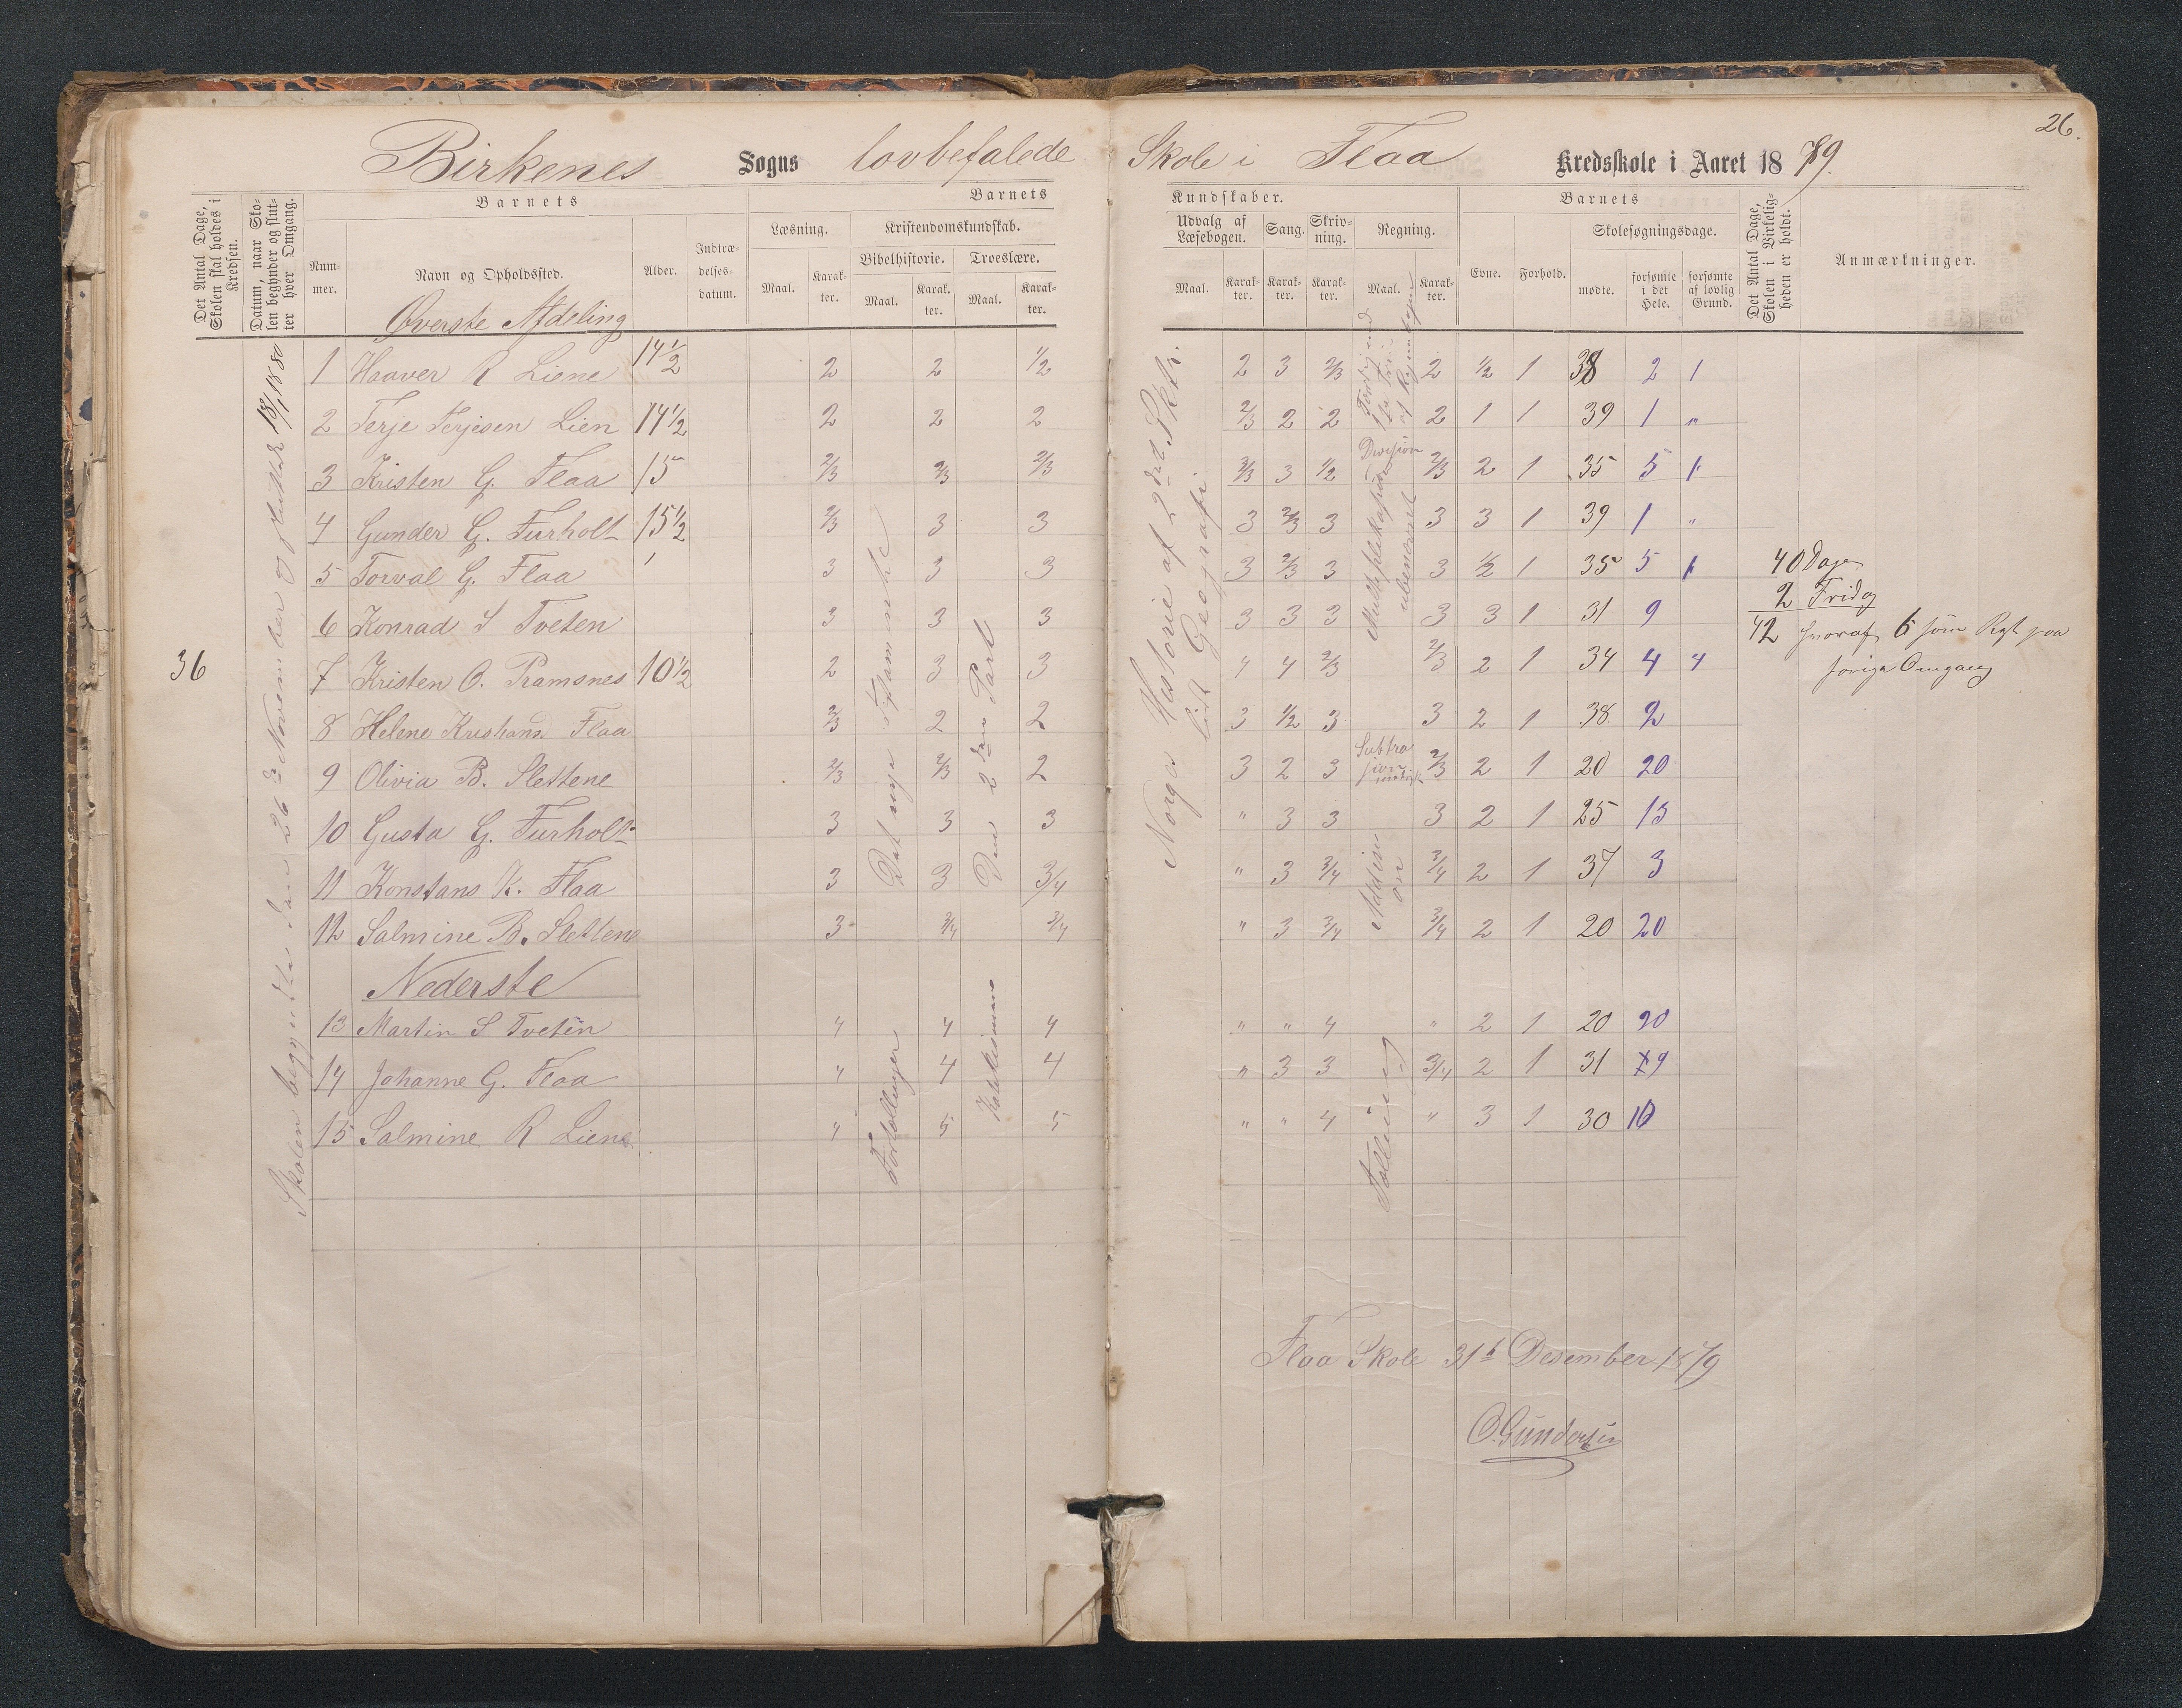 26.
Birkenes Sogns lovbefalede Skole i Flaa Kredsskole i Aaret 1879.
Det Antal Dage, Skolen skal holdes i Kredsen.
Datum, naar Skolen begynder og slutter hver Omgang.
Barnets
Nummer.
Navn og Opholdssted.
Alder.
Indtrædelsesdatum.
Barnets
Læsning.
Maal.
Karakter.
Kristendomskundskab.
Bibelhistorie.
Maal.
Karakter.
Troeslære.
Maal.
Karakter.
Kundskaber.
Udvalg af Læsebogen.
Maal.
Karakter.
Sang.
Karakter.
Skrivning.
Karakter.
Regning.
Maal.
Karakter.
Barnets
Evne.
Forhold.
Skolesøgningsdage.
mødte.
forsømte i det Hele.
forsømte af lovlig Grund.
Det Antal Dage, Skolen i Virkeligheden er holdt.
Anmærkninger.
36
Skolen begyndte den 26de November og sluttet 13/1 1880
Øverste Afdeling
1 Haaver R Liene 14 1/2 2 2 1/2 2 3 2/3 2 1/2 1 38 2 1
2 Terje Terjesen Lien 14 1/2 2 2 2 2/3 2 2 2 1 1 39 1 "
3 Kristen G. Flaa 15 2/3 2/3 2/3 2/3 3 1/2 2/3 2 1 35 5 1
4 Gunder G. Furholt 15 1/2 2/3 3 3 3 2/3 3 3 3 1 39 1 "
5 Torval G. Flaa 3 3 3 3 2/3 3 3 1/2 1 35 5 1
6 Konrad S Tveten 3 3 3 3 3 3 3 3 1 31 9
7 Kristen O. Pramsnes 10 1/2 2 3 3 4 4 2/3 2/3 2 1 34 4 4
8 Helene Kristians Flaa 2/3 2 2 3 1/2 3 3 2 1 38 2
9 Olivia B. Slettene 2/3 2/3 2 3 2 3 2/3 2 1 20 20
10 Gusta G. Furholt 3 3 3 " 3 3 3 2 1 25 15
11 Konstans K. Flaa 3 3 3/4 " 3 3/4 3/4 2 1 37 3
12 Salmine B. Slettene 3 3/4 3/4 " 3 3/4 3/4 2 1 20 20
Nederste
13 Martin S Tveten 4 4 4 " " 4 " 2 1 20 20
14 Johanne G. Flaa 4 4 4 " 3 3 3/4 2 1 31 9
15 Salmine R Liene 4 5 5 " " 4 " 3 1 30 10
Det nye Testamente
Den 2den Part
Fortællinger
Katekismus
Norges Historie af 2det Skt.
lidt Geografi
Division
Multiplikasjon
ubenevnt
Addision
Tælling
40 Dage
2 Frid
42 hvoraf 6 som Rest paa
forige Omgang
Flaa Skole 31te Desember 1879
O. Gundersen